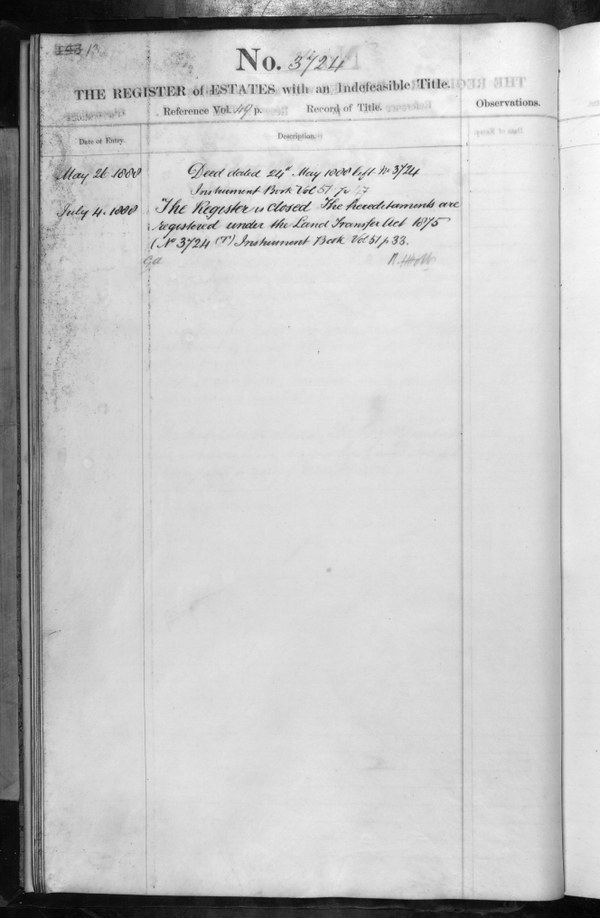 No. 3724
THE REGISTER of ESTATES with an Indefeasible Title.
Reference Vol. 49 p. Record of Title.
Observations.
Date of Entry.
Description.
May 26 1888
Deed dated 24th May 1888 left No 3724
Instrument Book Vol 51 p
July 4. 1888
The Register is closed The hereditaments are
registered under the Land Transfer Act 1875
(No 3724 ) Instrument Book Vol 51 p 33.